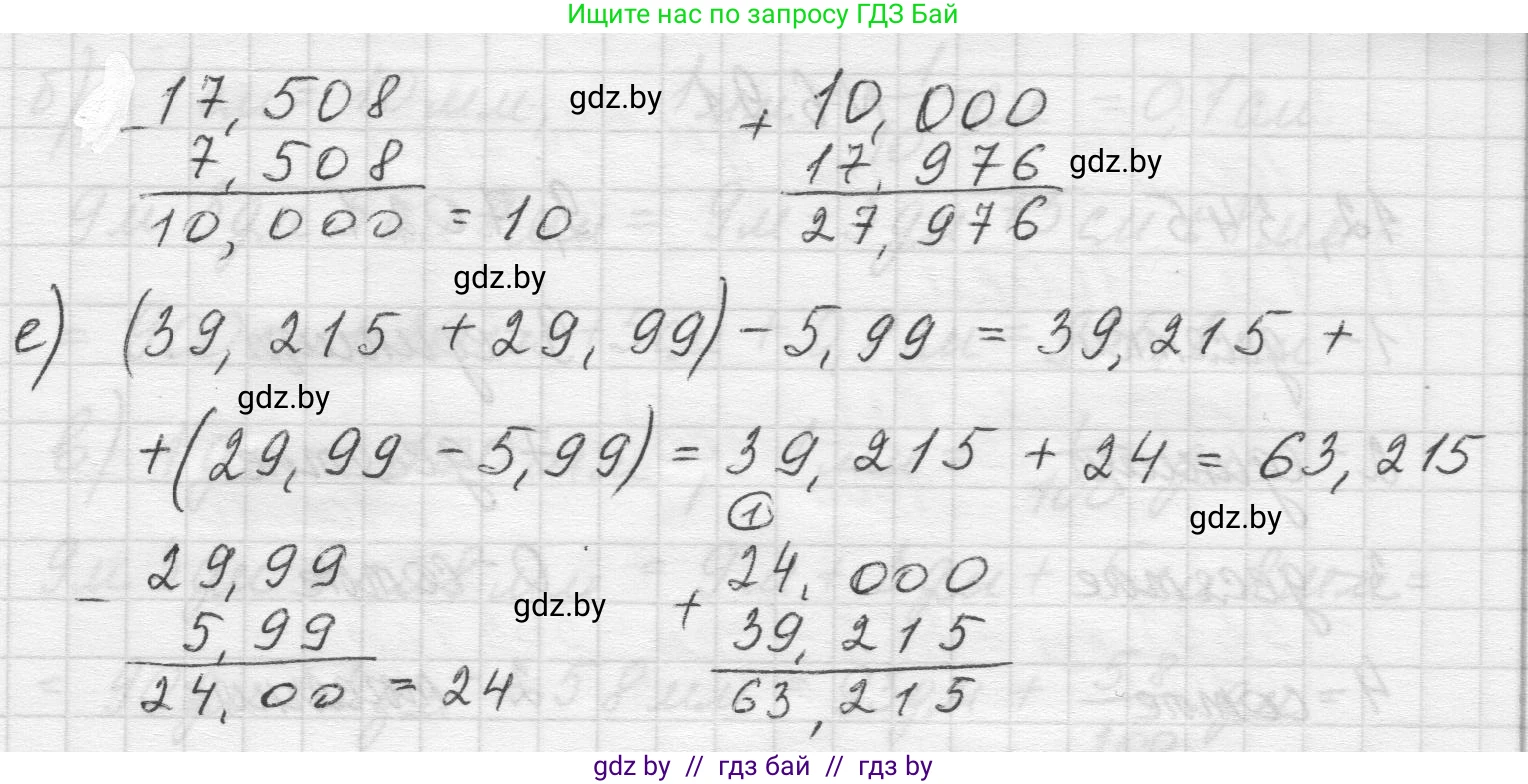 Ищите нас по запросу ГДЗ Бай
- 17,508 gdz.by + 10,000
7,508 17,976 gdz.by
10,000 = 10 27,976
gdz.by
е) (39,215 + 29,99) - 5,99 = 39,215 +
gdz.by
+ (29,99 - 5,99) = 39,215 + 24 = 63,215
1 gdz.by
- 29,99 + 24,000
5,99 gdz.by 39,215
24,00 = 24 63,215
gdz by // гдз бай // гдз by